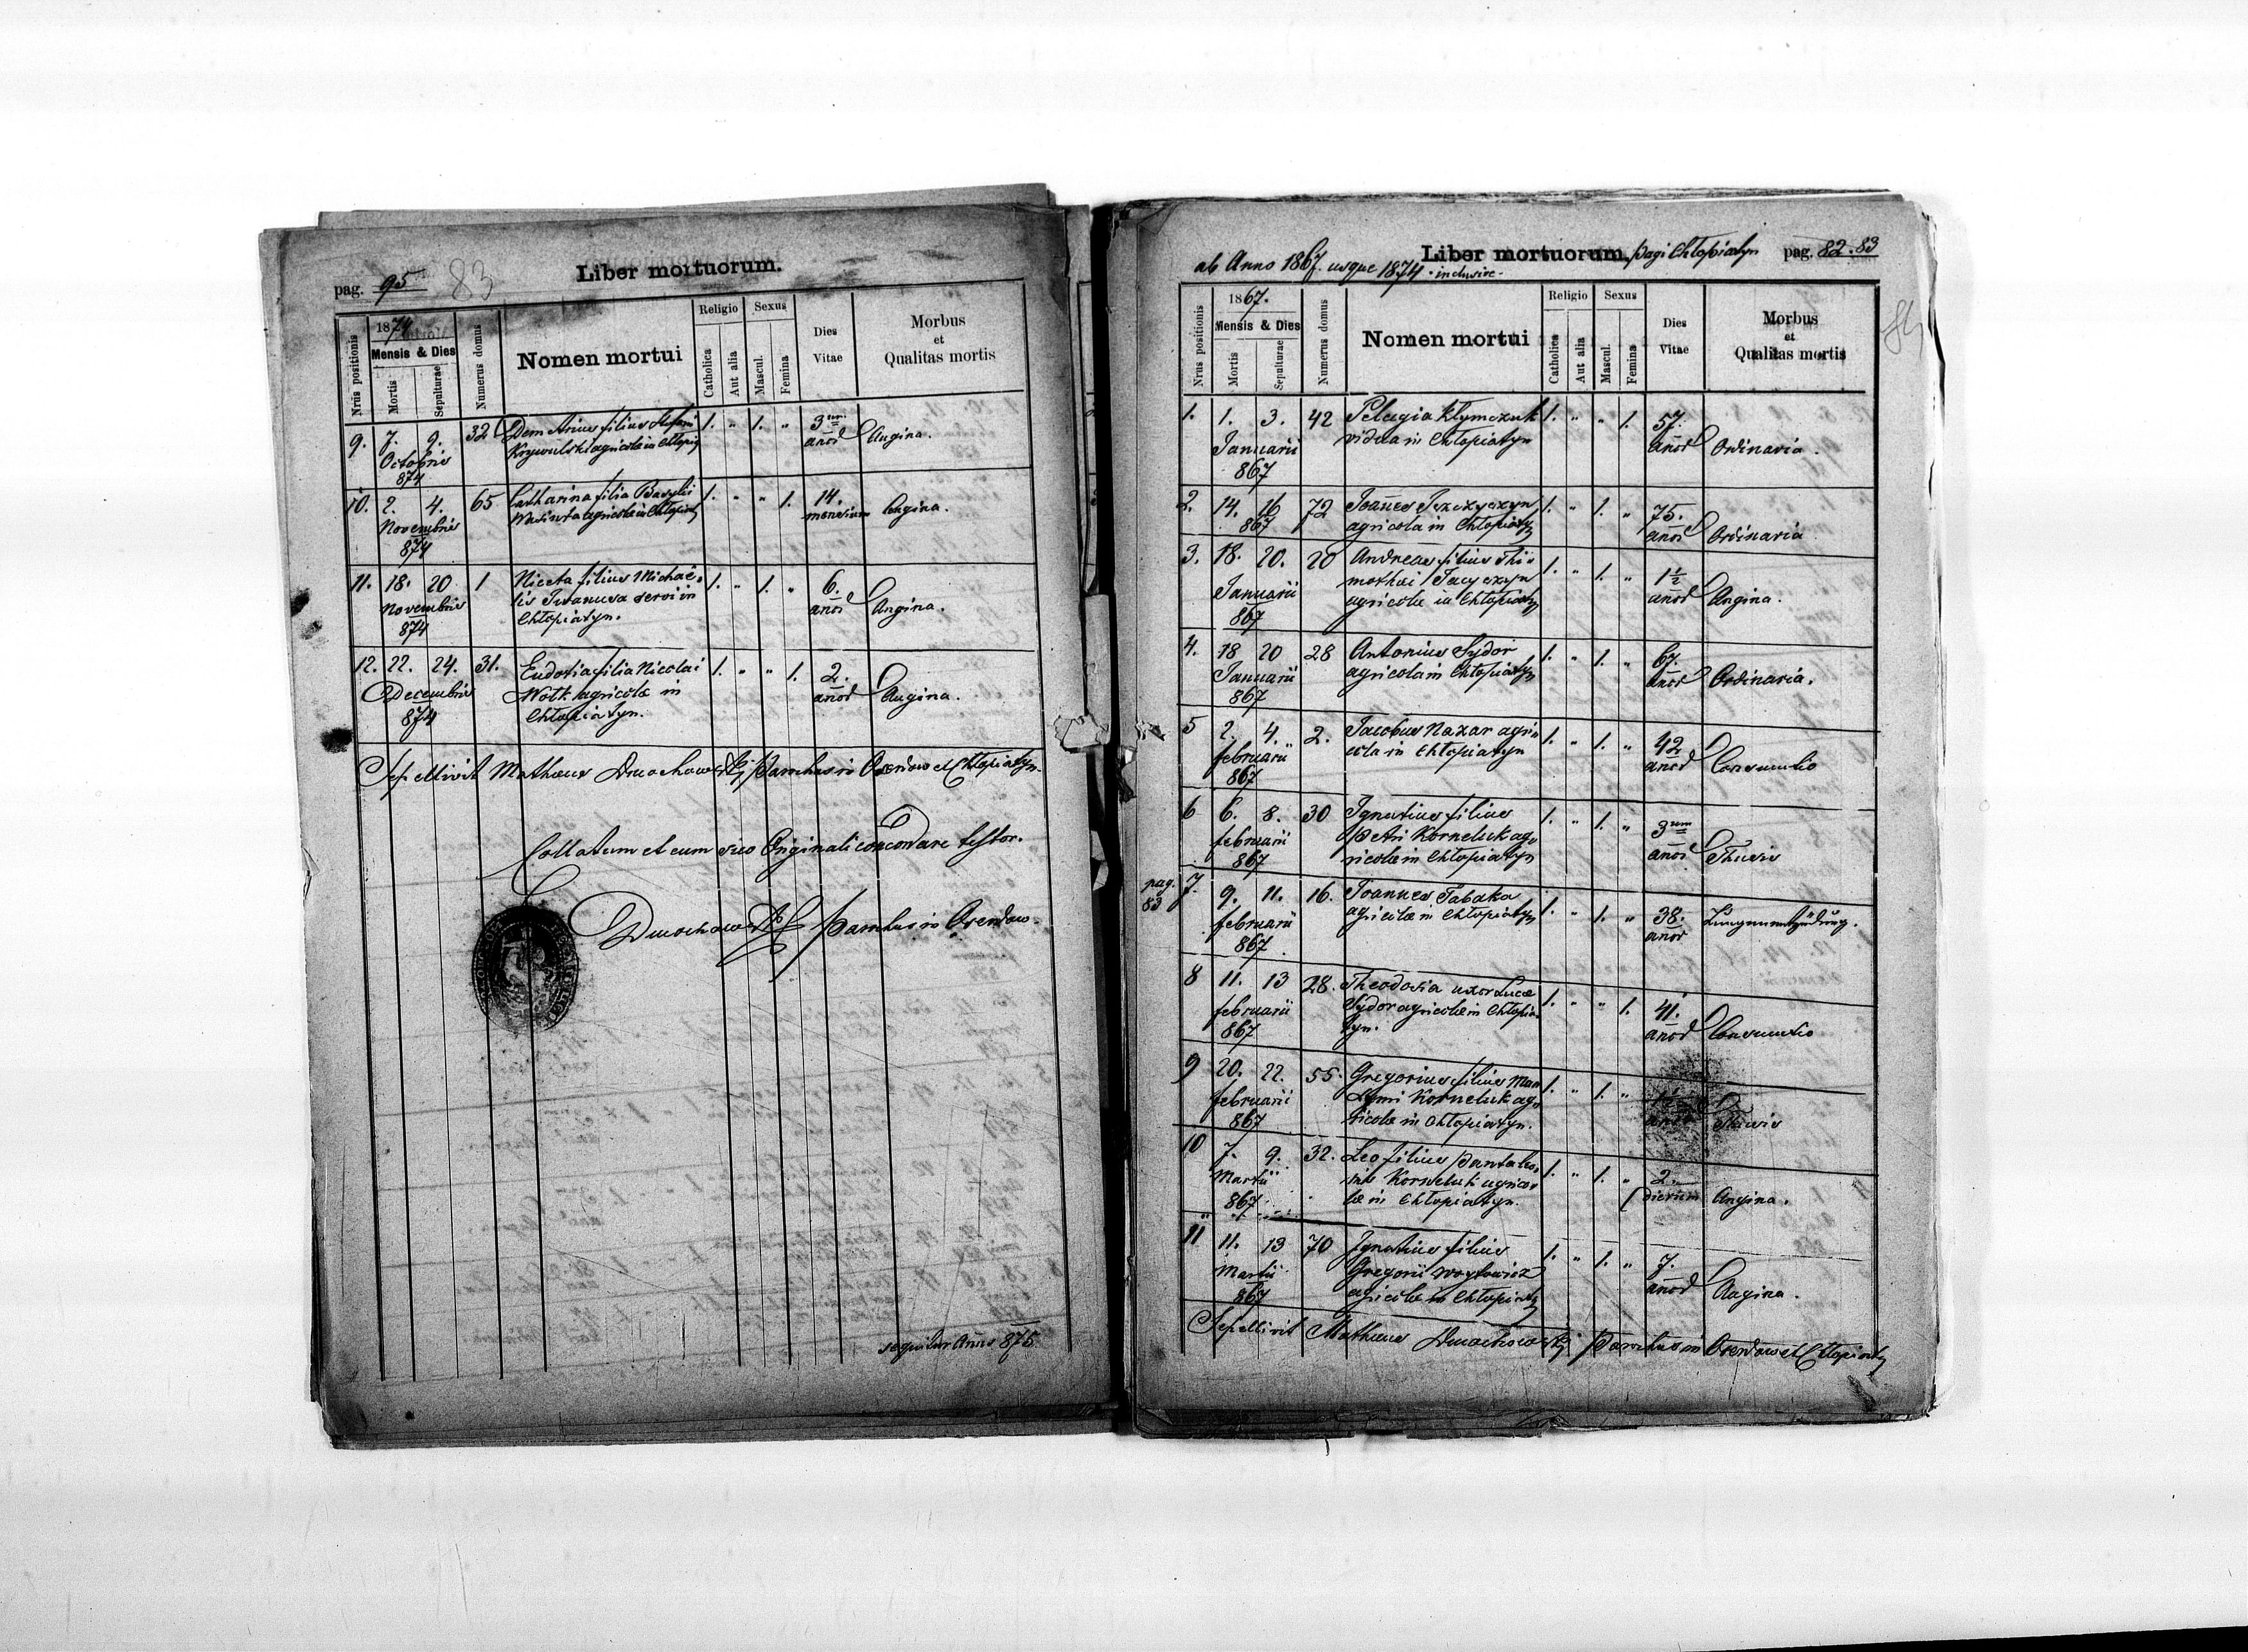 pag. 95 83
Liber mortuorum.
Nrus positionis
1874
Mensis & Dies
Mortis
Sepulturae
Numerus domus
Nomen mortui
Religio
Catholica
Aut alia
Sexus
Mascul.
Femina
Dies
Vitae
Morbus
et
Qualitas mortis
9. 7. 9. 32 Demetrius filius Stefani 1. " 1. " 3um
Octobris Krywulski agricolae in Chłopiat anor Angina.
874
10. 2. 4. 65 Catharina filia Basylii 1. " " 1. 14.
Novembris agricolae in Chłopiaty mensium Angina.
874
11. 18. 20 1 Niceta filius Michaë- 1. " 1. " 6.
Novembris lis Iwanusa servi in anor Angina.
874 Chłopiatyn.
12. 22. 24. 31. Eudoxia filia Nicolai 1. " " 1. 2.
Decembris Wołk agricolae in anor Angina.
874 Chłopiatyn.
Sepellivit Matheus Dmochowski Parochus in Oserdow et Chłopiatyn.
Collatum et cum suo Originali concordare testor.
Dmochowski Parochus in Oserdow.
sequitur Annus 875
ab Anno 1867. usque 1874 inclusive.
Liber mortuorum pagi Chłopiatyn pag. 82. 83
84
Nrus positionis
1867.
Mensis & Dies
Mortis
Sepulturae
Numerus domus
Nomen mortui
Religio
Catholica
Aut alia
Sexus
Mascul.
Femina
Dies
Vitae
Morbus
et
Qualitas mortis
1. 1. 3. 42 Pelagia Kłymczuk 1. " " 1. 57.
Januarii vidua in Chłopiatyn anor Ordinaria.
867
2. 14. 16 72 Joannes 1. " 1. " 75.
867 agricola in Chłopiaty anor Ordinaria
3. 18. 20. 20 Andreas filius Thi- 1. " 1. " 1½
Januarii mothei anor Angina.
867 agricolae in Chłopiaty
4. 18 20 28 Antonius Sydor 1. " 1. " 67.
Januarii agricola in Chłopiatyn anor Ordinaria.
867
5 2. 4. 2. Jacobus Nazar agri- 1. " 1. " 42
februarii cola in Chłopiatyn anor Consumtio
867
6 6. 8. 30 Ignatius filius 1. " 1. " 3um
februarii Petri Korneluk ag- anor Thusis
867 ricolae in Chłopiatyn
pag. 83
7. 9. 11. 16. Joannes Tabaka 1. " 1. " 38.
februarii agricola in Chłopiatyn anor Lungenentzündung.
867
8 11. 13 28. Theodosia uxor Lucae 1. " " 1. 41.
februarii Sydor agricolae in Chłopia- anor Consumtio
867 tyn.
9 20. 22. 55. Gregorius filius 1. " 1. " 1½
februarii Korneluk ag- anor Thusis
867 ricolae in Chłopiatyn.
10 7. 9. 32. Leo filius Pantaleo- 1. " 1. " 2.
Martii nis Korneluk agrico- dierum Angina.
867 lae in Chłopiatyn.
11 11. 13 70 Ignatius filius 1. " 1. " 7.
Martii Gregorii Woytowicz anor Angina.
867 agricolae in Chłopiaty
Sepellivit Matheus Dmochowski Parochus in Oserdow et Chłopiaty